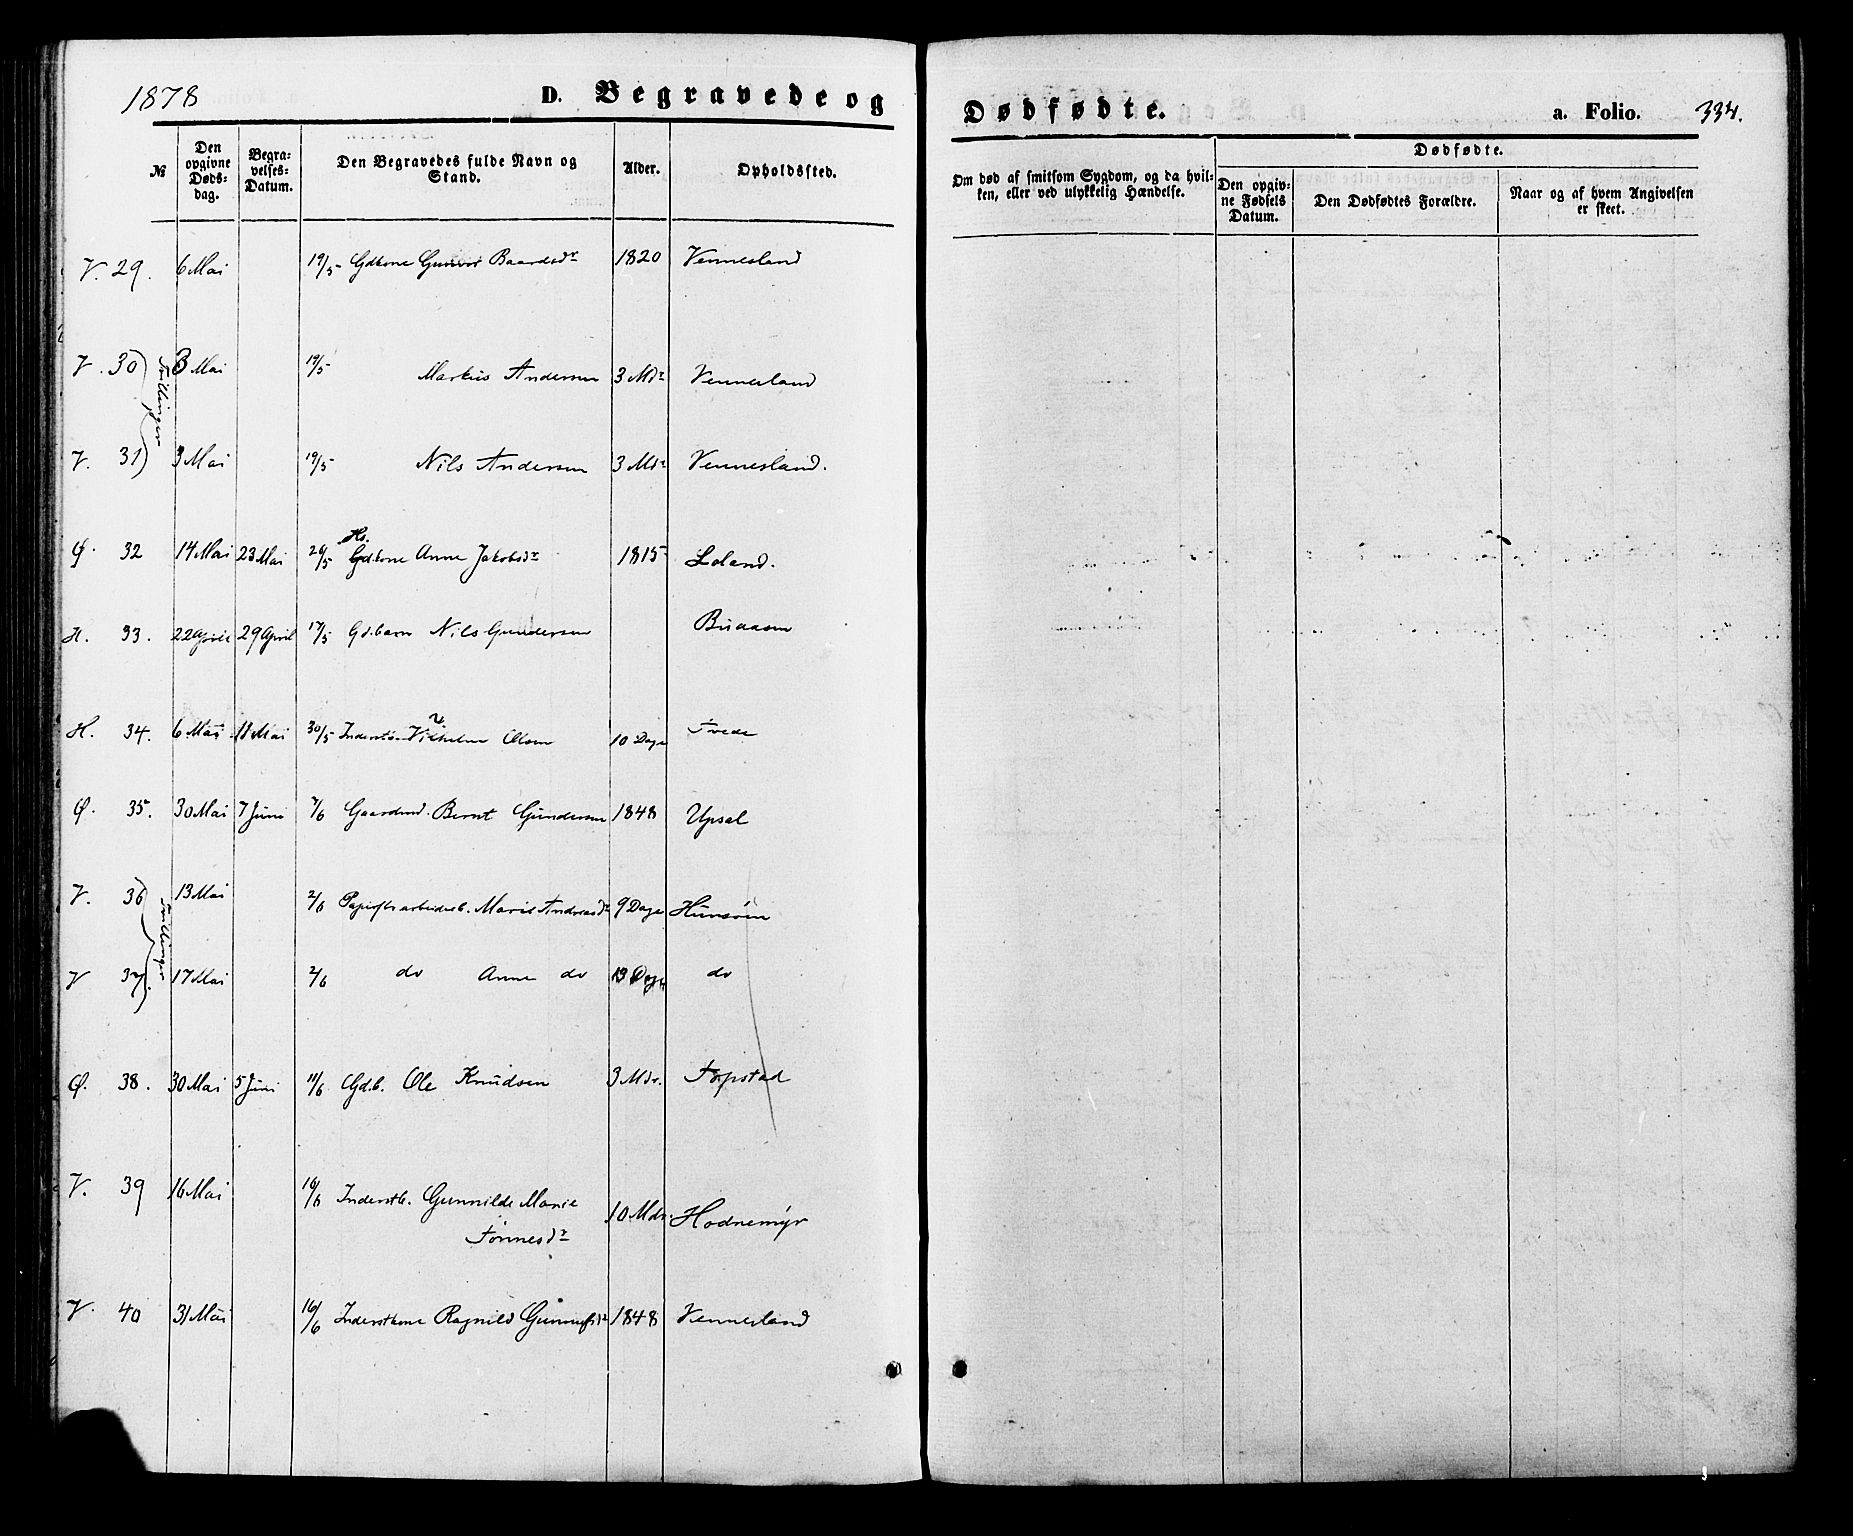 1878
D. Begravede og
Dødfødte.
a. Folio. 334.
№
Den opgivne Døds-dag.
Begra-velses-Datum.
Den Begravedes fulde Navn og Stand.
Alder.
Opholdssted.
Om død af smitsom Sygdom, og da hvil-ken, eller ved ulykkelig Hændelse.
Dødfødte.
Den opgiv-ne Fødsels Datum.
Den Dødfødtes Forældre.
Naar og af hvem Angivelsen er skeet.
V. 29. 6 Mai 19/5 Gdkone Baardsdr 1820 Vennesland
V. 30) 3 Mai 19/5 Markus Andersen 3 Mdr Vennesland
Tvillinger
V. 31) 3 Mai 19/5 Nils Andersen 3 Mdr Vennesland.
Ø. 32 14 Mai 23 Mai 26/5 Gdkone Anne Jakobsdr 1815 Loland.
H. 33. 22 April 29 April 17/5 Gd.barn Nils Gundersen
H. 34. 6 Mai 18 Mai 30/5 Vilhelm Olsen 10 Dage Tvede
Ø. 35. 30 Mai 7 Juni 7/6 Bernt Gundersen 1848 Upsal
V. 36) 13 Mai 2/6 Marie Andreasdr 9 Dage Hunsøen
Tvillinger
V 37). 17 Mai 2/6 do Anne do 13 Dage do
Ø. 38. 30 Mai 5 Juni 11/6 Gd.b. Ole Knudsen 3 Mdr. Fopstad
V. 39 16 Mai 16/6 Inderstb. Gunnilde Marie
Tønnesdr 10 Mdr. Hodnemyr
V. 40 31 Mai 16/6 Inderstkone Ragnild 1848 Vennesland